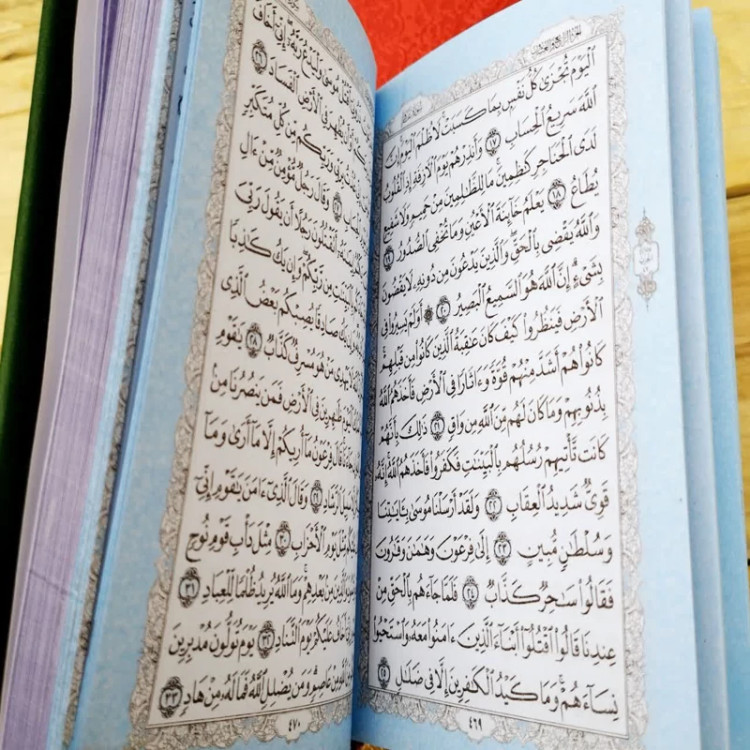 الجزء الرابع والعشرون
ٱلْيَوْمَ تُجْزَىٰ كُلُّ نَفْسٍۭ بِمَا كَسَبَتْ لَا ظُلْمَ ٱلْيَوْمَ إِنَّ
ٱللَّهَ سَرِيعُ ٱلْحِسَابِ ١٧ وَأَنذِرْهُمْ يَوْمَ ٱلْأَزِفَةِ إِذِ ٱلْقُلُوبُ
لَدَى ٱلْحَنَاجِرِ كَٰظِمِينَ مَا لِلظَّٰلِمِينَ مِنْ حَمِيمٍ وَلَا شَفِيعٍ
يُطَاعُ ١٨ يَعْلَمُ خَآئِنَةَ ٱلْأَعْيُنِ وَمَا تُخْفِى ٱلصُّدُورُ ١٩
وَٱللَّهُ يَقْضِى بِٱلْحَقِّ وَٱلَّذِينَ يَدْعُونَ مِن دُونِهِۦ لَا يَقْضُونَ
بِشَىْءٍ إِنَّ ٱللَّهَ هُوَ ٱلسَّمِيعُ ٱلْبَصِيرُ ٢٠ أَوَلَمْ يَسِيرُوا۟ فِى
ٱلْأَرْضِ فَيَنظُرُوا۟ كَيْفَ كَانَ عَٰقِبَةُ ٱلَّذِينَ كَانُوا۟ مِن قَبْلِهِمْ
كَانُوا۟ هُمْ أَشَدَّ مِنْهُمْ قُوَّةً وَءَاثَارًا فِى ٱلْأَرْضِ فَأَخَذَهُمُ ٱللَّهُ
بِذُنُوبِهِمْ وَمَا كَانَ لَهُم مِّنَ ٱللَّهِ مِن وَاقٍ ٢١ ذَٰلِكَ بِأَنَّهُمْ
كَانَت تَّأْتِيهِمْ رُسُلُهُم بِٱلْبَيِّنَٰتِ فَكَفَرُوا۟ فَأَخَذَهُمُ ٱللَّهُ إِنَّهُۥ
قَوِىٌّ شَدِيدُ ٱلْعِقَابِ ٢٢ وَلَقَدْ أَرْسَلْنَا مُوسَىٰ بِـَٔايَٰتِنَا
وَسُلْطَٰنٍ مُّبِينٍ ٢٣ إِلَىٰ فِرْعَوْنَ وَهَٰمَٰنَ وَقَٰرُونَ
فَقَالُوا۟ سَٰحِرٌ كَذَّابٌ ٢٤ فَلَمَّا جَآءَهُم بِٱلْحَقِّ مِنْ
عِندِنَا قَالُوا۟ ٱقْتُلُوٓا۟ أَبْنَآءَ ٱلَّذِينَ ءَامَنُوا۟ مَعَهُۥ وَٱسْتَحْيُوا۟
نِسَآءَهُمْ وَمَا كَيْدُ ٱلْكَٰفِرِينَ إِلَّا فِى ضَلَٰلٍ ٢٥
٤٦٩
أَقْتُلْ مُوسَىٰ وَلْيَدْعُ رَبَّهُۥٓ إِنِّىٓ أَخَافُ
يُظْهِرَ فِى ٱلْأَرْضِ ٱلْفَسَادَ ٢٦
بِرَبِّى وَرَبِّكُم مِّن كُلِّ مُتَكَبِّرٍ
وَقَالَ رَجُلٌ مُّؤْمِنٌ مِّنْ ءَالِ
أَتَقْتُلُونَ رَجُلًا أَن يَقُولَ رَبِّىَ
مِن رَّبِّكُمْ وَإِن يَكُ كَٰذِبًا
صَادِقًا يُصِبْكُم بَعْضُ ٱلَّذِى
يَهْدِى مَنْ هُوَ مُسْرِفٌ كَذَّابٌ ٢٨ يَٰقَوْمِ
ٱلْيَوْمَ ظَٰهِرِينَ فِى ٱلْأَرْضِ فَمَن يَنصُرُنَا مِنۢ
قَالَ فِرْعَوْنُ مَآ أُرِيكُمْ إِلَّا مَآ أَرَىٰ وَمَآ
سَبِيلَ ٱلرَّشَادِ ٢٩ وَقَالَ ٱلَّذِىٓ ءَامَنَ يَٰقَوْمِ إِنِّىٓ
مِّثْلَ يَوْمِ ٱلْأَحْزَابِ ٣٠ مِثْلَ دَأْبِ قَوْمِ نُوحٍ
مِنۢ بَعْدِهِمْ وَمَا ٱللَّهُ يُرِيدُ ظُلْمًا لِّلْعِبَادِ ٣١
أَخَافُ عَلَيْكُمْ يَوْمَ ٱلتَّنَادِ ٣٢ يَوْمَ تُوَلُّونَ مُدْبِرِينَ
مِنْ عَاصِمٍ وَمَن يُضْلِلِ ٱللَّهُ فَمَا لَهُۥ مِنْ هَادٍ ٣٣
٤٧٠